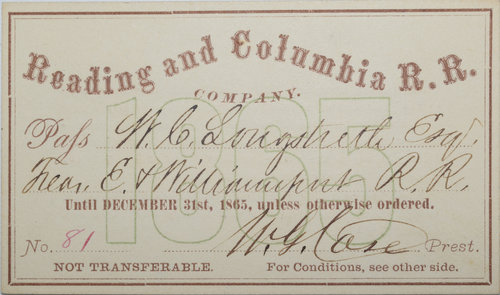 Reading and Columbia R.R.
COMPANY.
1865
Pass W. C. Longstreth Esqr
Treas. E. & Williamsport R. R.
Until DECEMBER 31st, 1865, unless otherwise ordered.
No. 81 W. G. Case Prest.
NOT TRANSFERABLE. For Conditions, see other side.